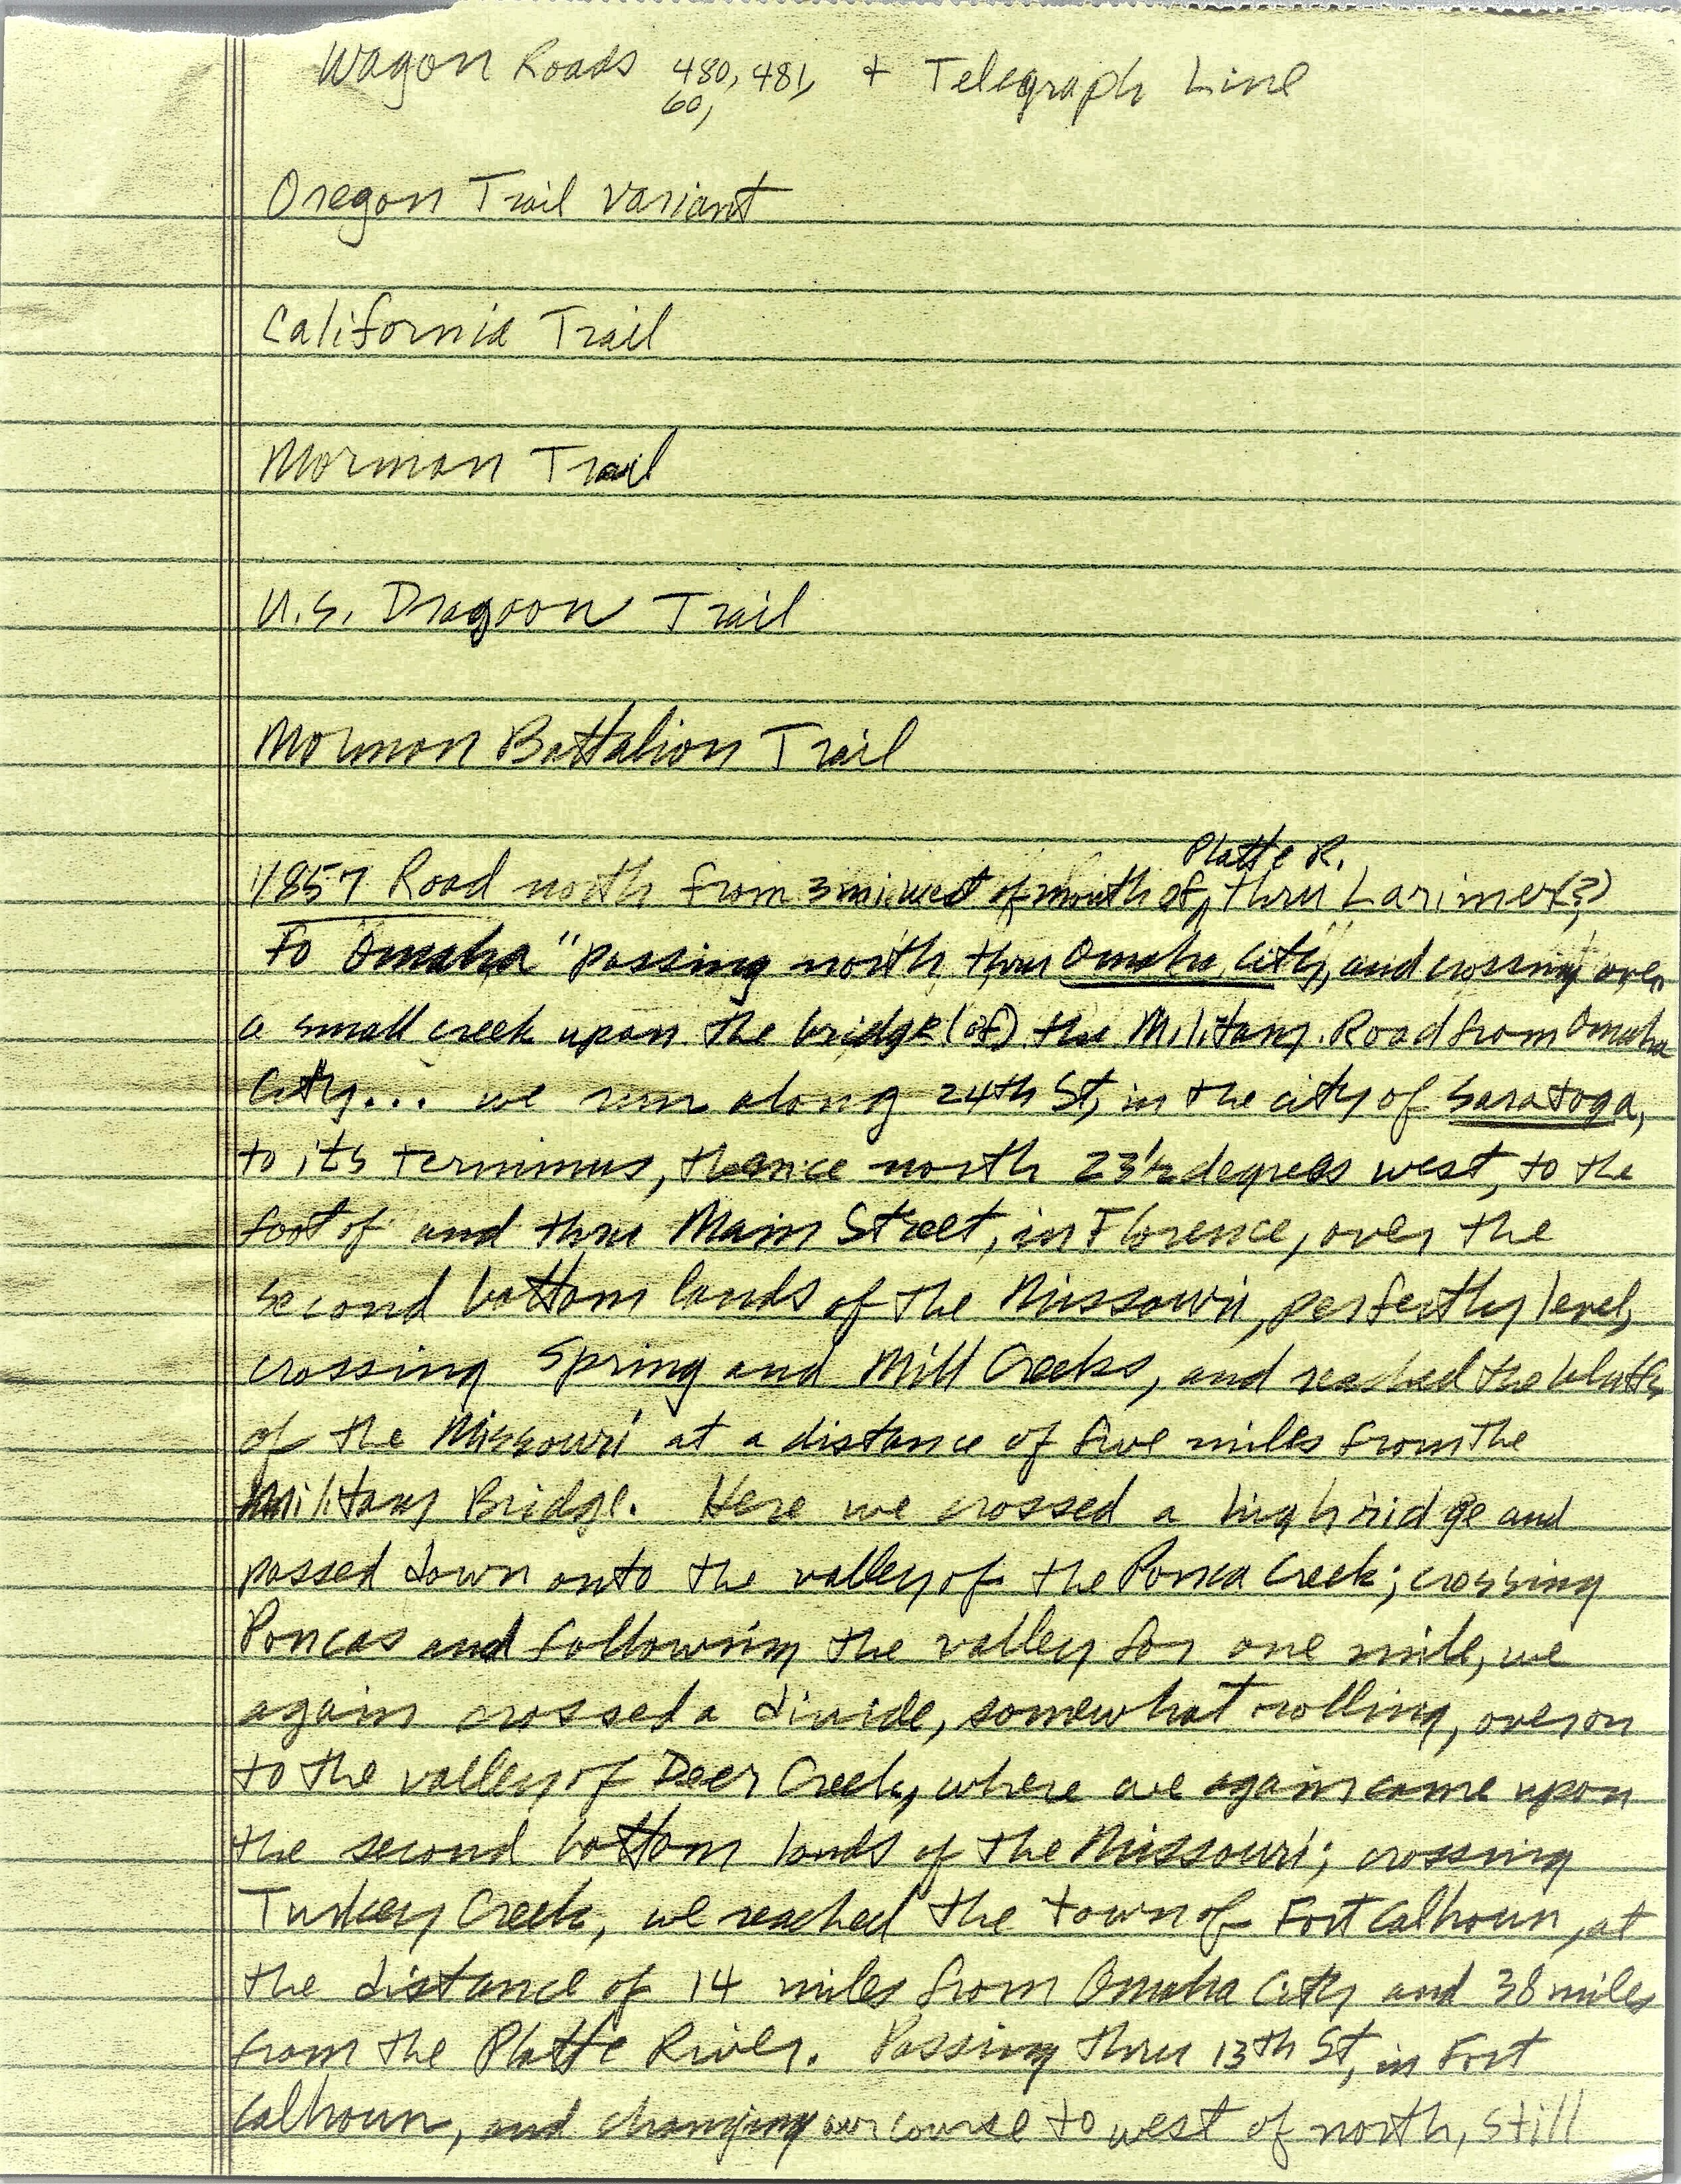 Wagon Roads 480, 481, + Telegraph Line
60,
Oregon Trail Variant
California Trail
Mormon Trail
U.S. Dragoon Trail
Mormon Battalion Trail
Platte R.
1857 Road north from 3 mi west of mouth of, thru Larimer(?)
To Omaha "passing north, thru Omaha City, and crossing over
a small creek upon the bridge (of) the Military Road from Omaha
City... we run along 24th St, in the city of Saratoga,
to its terminus, thence north 23½ degrees west, to the
foot of and thru Main Street, in Florence, over the
second bottom lands of the Missouri, perfectly level,
crossing Spring and Mill Creeks, and reached the bluffs
of the Missouri at a distance of five miles from the
Military Bridge. Here we crossed a high ridge and
passed down onto the valley of the Ponca Creek; crossing
Poncas and following the valley for one mile, we
again crossed a divide, somewhat rolling, over on
to the valley of Deer Creek, where we again came upon
the second bottom lands of the Missouri; crossing
Turkey Creek, we reached the town of Fort Calhoun, at
the distance of 14 miles from Omaha City and 38 miles
from the Platte River. Passing thru 13th St, in Fort
Calhoun, and changing our course to west of north, still